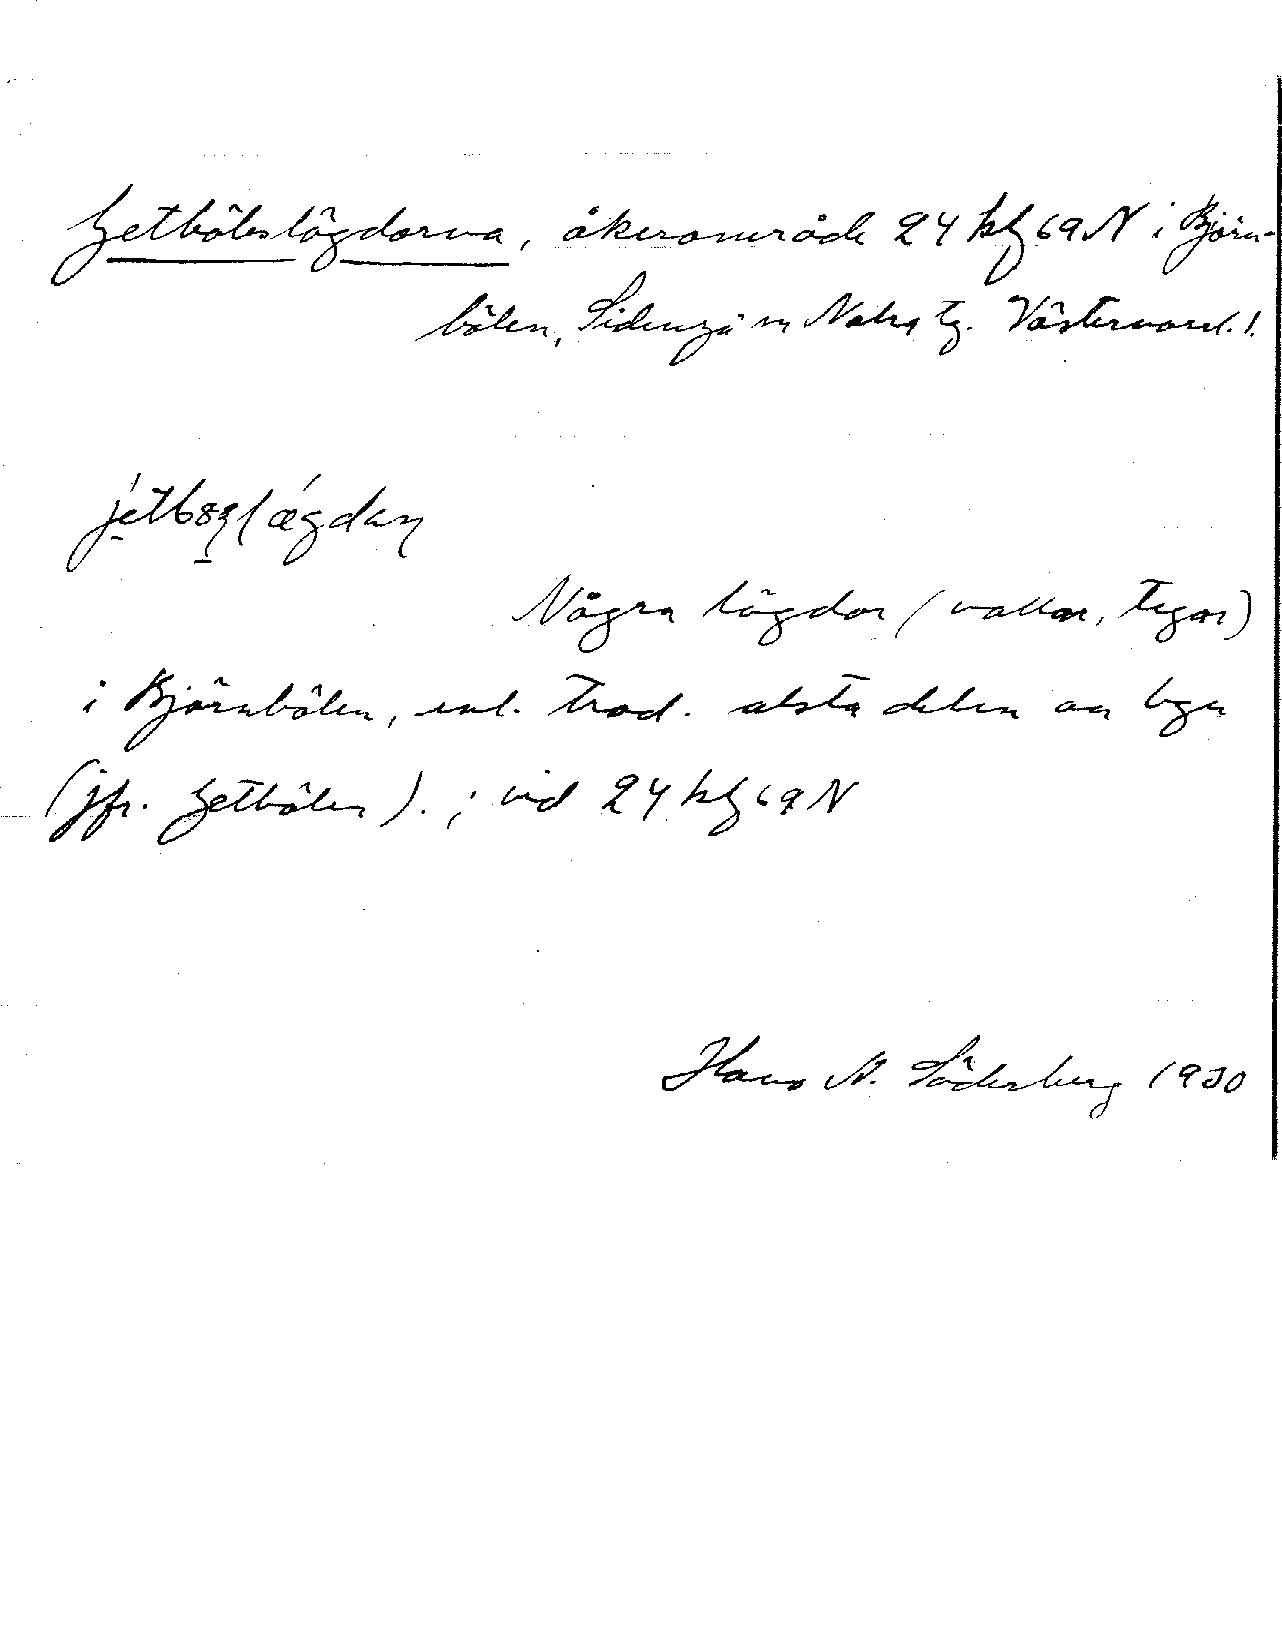 Getbölelägdorna, åkerområde 24 hlf 69 N i Björn-
bölen, Sidensjö sn Nätra tg. Västernorrl. l.
Några lägdor (vallar, tegar)
i Björnbölen, enl. trad. älsta delen av byn
(jfr. Getbölen). ; vid 24 hlf 69 N
Hans N. Söderberg 1930